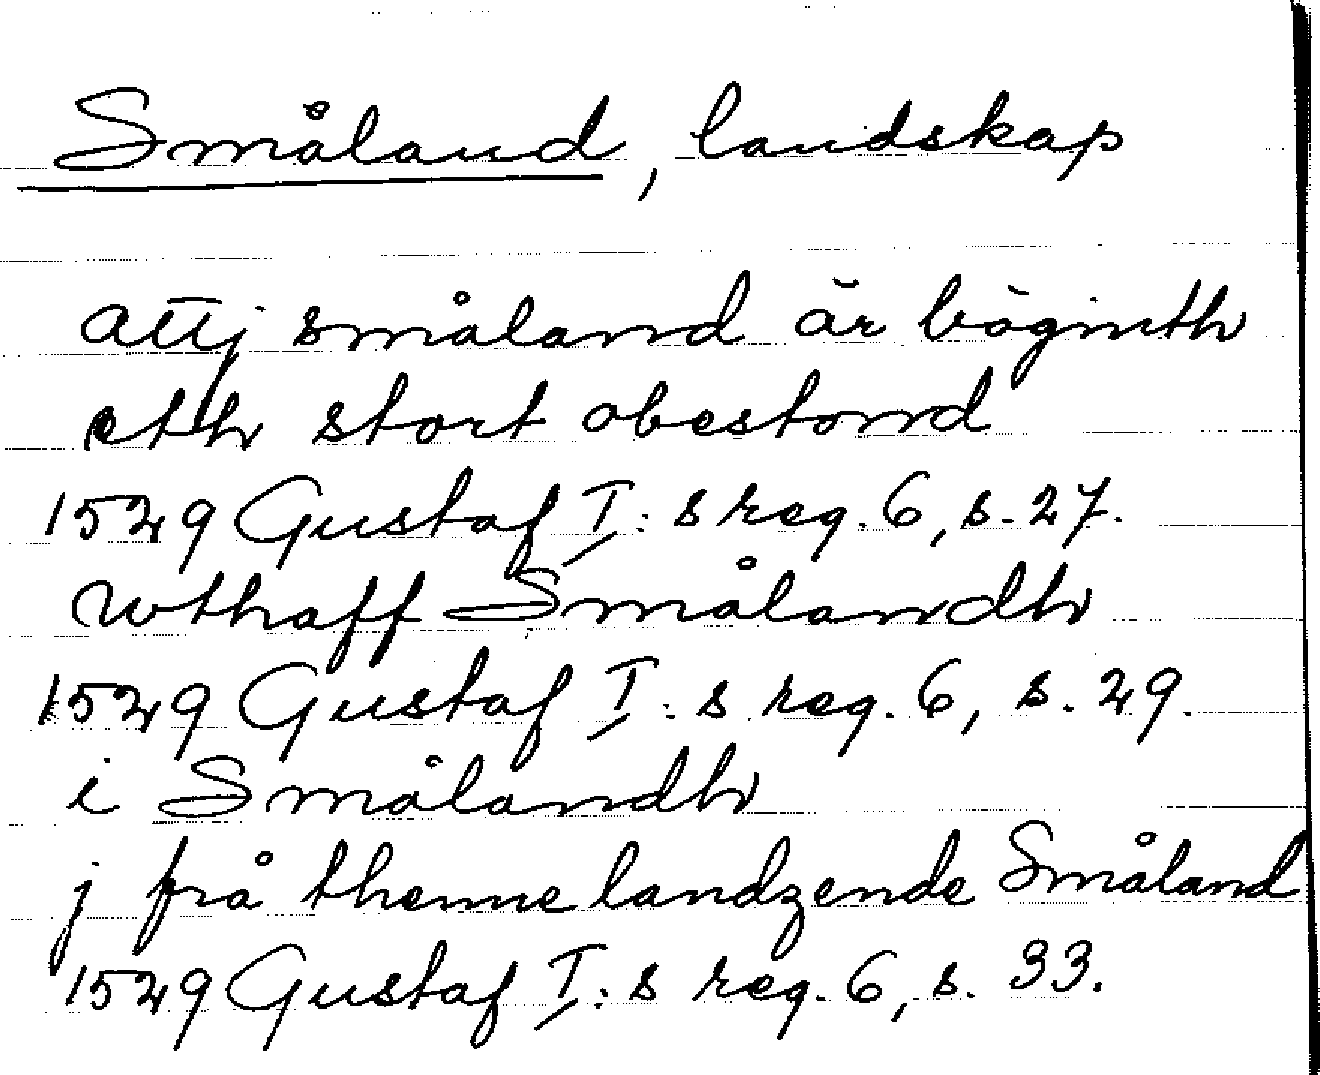 Småland, landskap
attj småland är bögint​h
etth stort obestond
1529 Gustaf I:s reg. 6, s. 27.
wthaff Smålandh
1529 Gustaf I:s reg. 6, s. 29.
i Smålandh
j frå thenne landzende Småland
1529 Gustaf I:s reg. 6, s. 33.